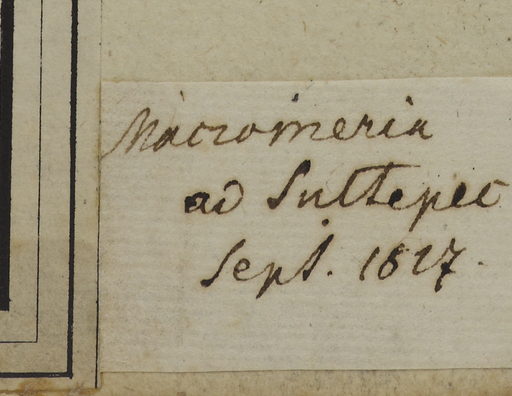 Macromeria
ad Sultepec
Sept. 1827.